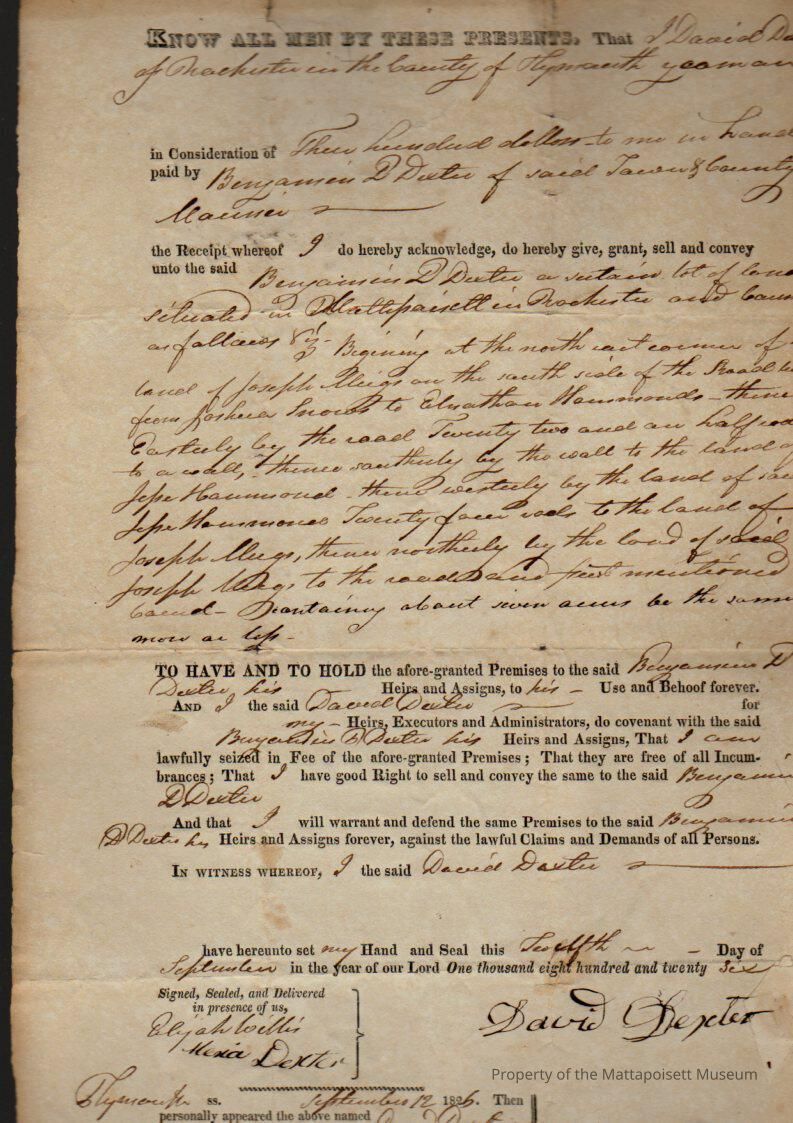 KNOW ALL MEN BY THESE PRESENTS, That I David De
of Rochester in the County of Plymouth yeoman
in Consideration of Three hundred dollars to me in hand
paid by Benjamin D Dexter of said Town & County
Mariner
the Receipt whereof I do hereby acknowledge, do hereby give, grant, sell and convey
unto the said Benjamin D Dexter a certain lot of land
situated in Mattapoisett in Rochester and Coun
as follows Viz Begining at the north east corner of
land of Joseph Meigs on the south side of the Road
from Joshua Snows to Elnathan Hammonds - thence
Easterly by the road Twenty two and an half rod
to a wall, thence southerly by the wall to the land of
Jesse Hammond - thence westerly by the land of sai
Jesse Hammond Twenty four rods to the land of
Joseph Meigs, thence northerly by the land of said
Joseph Meigs to the road and first mentioned
bound - Containing about seven acres be the same
more or less -
TO HAVE AND TO HOLD the afore-granted Premises to the said Benjamin D
Dexter his Heirs and Assigns, to his - Use and Behoof forever.
AND I the said David Dexter for
my - Heirs, Executors and Administrators, do covenant with the said
Benjamin D Dexter his Heirs and Assigns, That I am
lawfully seized in Fee of the afore-granted Premises; That they are free of all Incum-
brances; That I have good Right to sell and convey the same to the said Benjamin
D Dexter
And that I will warrant and defend the same Premises to the said Benjamin
D Dexter his Heirs and Assigns forever, against the lawful Claims and Demands of all Persons.
IN WITNESS WHEREOF, I the said David Dexter
have hereunto set my Hand and Seal this Twelfth - Day of
September in the year of our Lord One thousand eight hundred and twenty six
Signed, Sealed, and Delivered
in presence of us,
Elijah Willis
David Dexter
Dexter
Property of the Mattapoisett Museum
Plymouth ss. September 12 1826. Then
personally appeared the above named David Dext